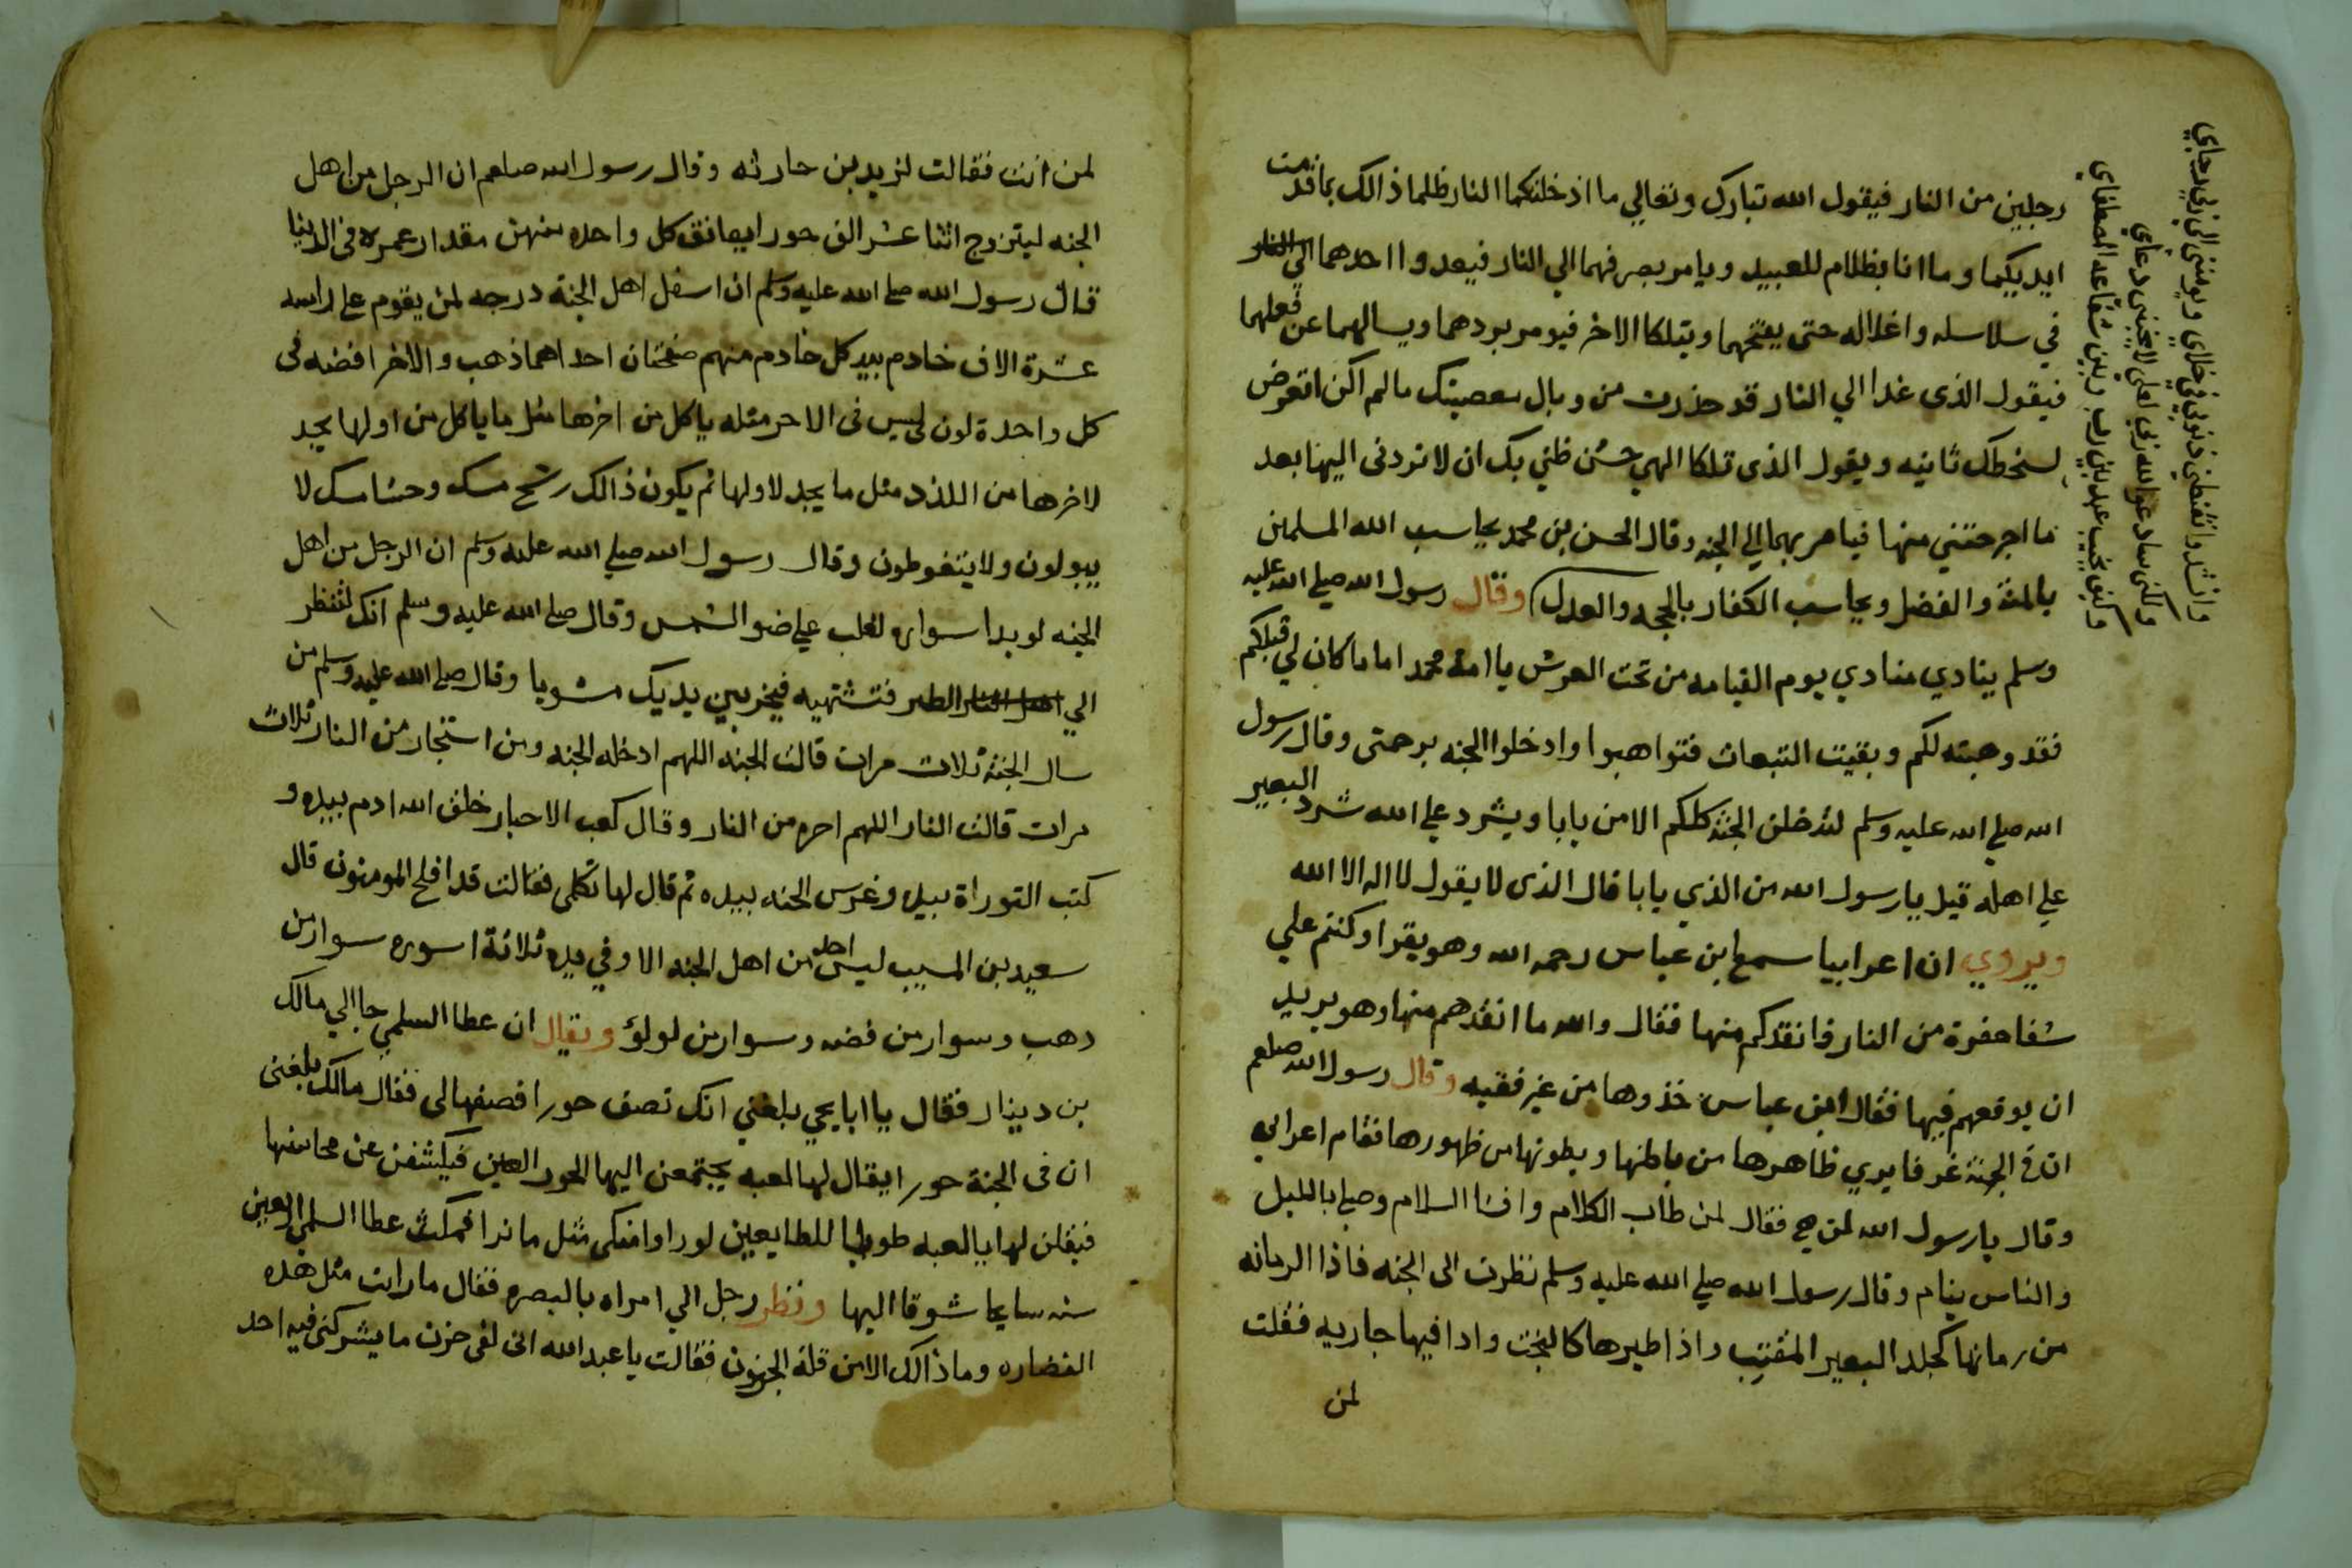 رجلين من النار فيقول الله تبارك وتعالي ما ادخلتكما النار ظلما ذالك بما قدمت
ايديكما وما انا بظلام للعبيد ويامر بصرفهما الي النار فيعدوا احدهما الي النار
في سلاسله واغلاله حتى يقتحمها ويتلكا الاخر فيومر بردهما ويسالهما عن فعلهما
فيقول الذى غدا الي النار قد حذرت من وبال معصيتك مالم اكن اتعرض
لسخطك ثانيه ويقول الذى تلكا الهي حسن ظني بك ان لا تردنى اليها بعد
ما اخرجتني منها فيامر بهما الي الجنه وقال الحسن بن محمد يحاسب الله المسلمين
بالمنة والفضل ويحاسب الكفار بالحجه والعدل وقال رسول الله صلي الله عليه
وسلم ينادي منادي يوم القيامه من تحت العرش يا امة محمد اما ما كان لي قبلكم
فقد وهبته لكم وبقيت التبعات فتواهبوا وادخلوا الجنه برحمتى وقال رسول
الله صلي الله عليه وسلم لتدخلن الجنة كلكم الا من يابا ويشرد علي الله شرد البعير
علي اهله قيل يا رسول الله من الذي يابا قال الذى لا يقول لا اله الا الله
ويروي ان اعرابيا سمع ابن عباس رحمه الله وهو يقرا وكنتم علي
شفا حفرة من النار فانقدكم منها فقال والله ما انقدهم منها وهو يريد
ان يوقعهم فيها فقال ابن عباس خذوها من غير فقيه وقال رسول الله صلعم
ان فى الجنة غرفا يري ظاهرها من باطنها وبطونها من ظهورها فقام اعرابي
وقال يا رسول الله لمن هي فقال لمن طاب الكلام وافشا السلام وصلي بالليل
والناس ينام وقال رسول الله صلي الله عليه وسلم نظرت الى الجنه فاذا الرمانه
من رمانها كجلد البعير المقتب واذا طيرها كالبخت واذا فيها جاريه فقلت
لمن
لمن انت فقالت لزيد بن حارثه وقال رسول الله صلعم ان الرجل من اهل
الجنه ليتزوج اثنا عشر الف حورا يعانق كل واحده منهن مقدار عمره فى الدنيا
قال رسول الله صلي الله عليه وسلم ان اسفل اهل الجنة درجه لمن يقوم على راسه
عشرة الاف خادم بيد كل خادم منهم صفحتان احداهما ذهب والاخرا فضه فى
كل واحدة لون ليس فى الاخر مثله ياكل من اخرها مثل ما ياكل من اولها يجد
لاخرها من اللذذ مثل ما يجد لاولها ثم يكون ذالك رشح مسك وجشا مسك لا
يبولون ولا يتغوطون وقال رسول الله صلي الله عليه وسلم ان الرجل من اهل
الجنه لو بدا سواره لغلب علي ضو الشمس وقال صلي الله عليه وسلم انك لتنظر
الي الطير فتشتهيه فيخر بين يديك مشويا وقال صلي الله عليه وسلم من
سال الجنة ثلاث مرات قالت الجنه اللهم ادخله الجنه ومن استجار من النار ثلاث
مرات قالت النار اللهم اجره من النار وقال كعب الاحبار خلق الله ادم بيده و
كتب التوراة بيده وغرس الجنه بيده ثم قال لها تكلمى فقالت قد افلح المومنون قال
سعيد بن المسيب ليس احد من اهل الجنه الا وفي يده ثلاثة اسوره سوار من
دهب وسوار من فضه وسوار من لولؤ ويقال ان عطا السلمي جا الي مالك
بن دينار فقال يا ابا يحي بلغني انك تصف حورا فصفها لى فقال مالك بلغنى
ان فى الجنة حورا يقال لها لعبه يجتمعن اليها الحور العين فيكشفن عن محاسنها
فيقلن لها يا لعبه طوبا للطايعين لو راوا منكى مثل ما نرا فمكث عطا السلمي اربعين
سنه سايحا شوقا اليها ونظر رجل الي امراه بالبصره فقال ما رايت مثل هذه
النضاره وما ذالك الا من قلة الحزن فقالت يا عبد الله انى لفى حزن ما يشركنى فيه احد